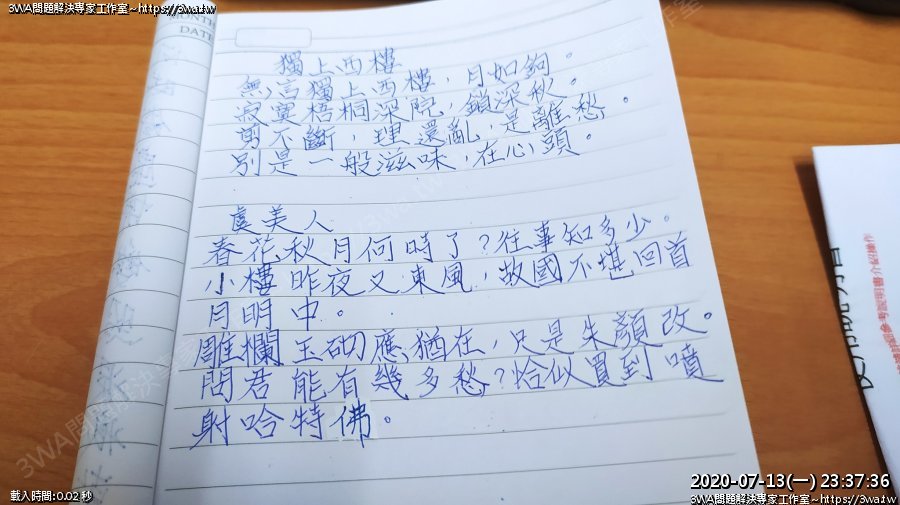 3WA問題解決專家工作室~https://3wa.tw
MONTH
DATE
獨上西樓
無言獨上西樓，月如鉤。
寂寞梧桐深院，鎖深秋。
剪不斷，理還亂，是離愁。
別是一般滋味，在心頭。
虞美人
春花秋月何時了？往事知多少。
小樓昨夜又東風，故國不堪回首
月明中。
雕欄玉砌應猶在，只是朱顏改。
問君能有幾多愁？恰似買到噴
射哈特佛。
2020-07-13(一) 23:37:36
載入時間:0.02 秒
3WA問題解決專家工作室~https://3wa.tw